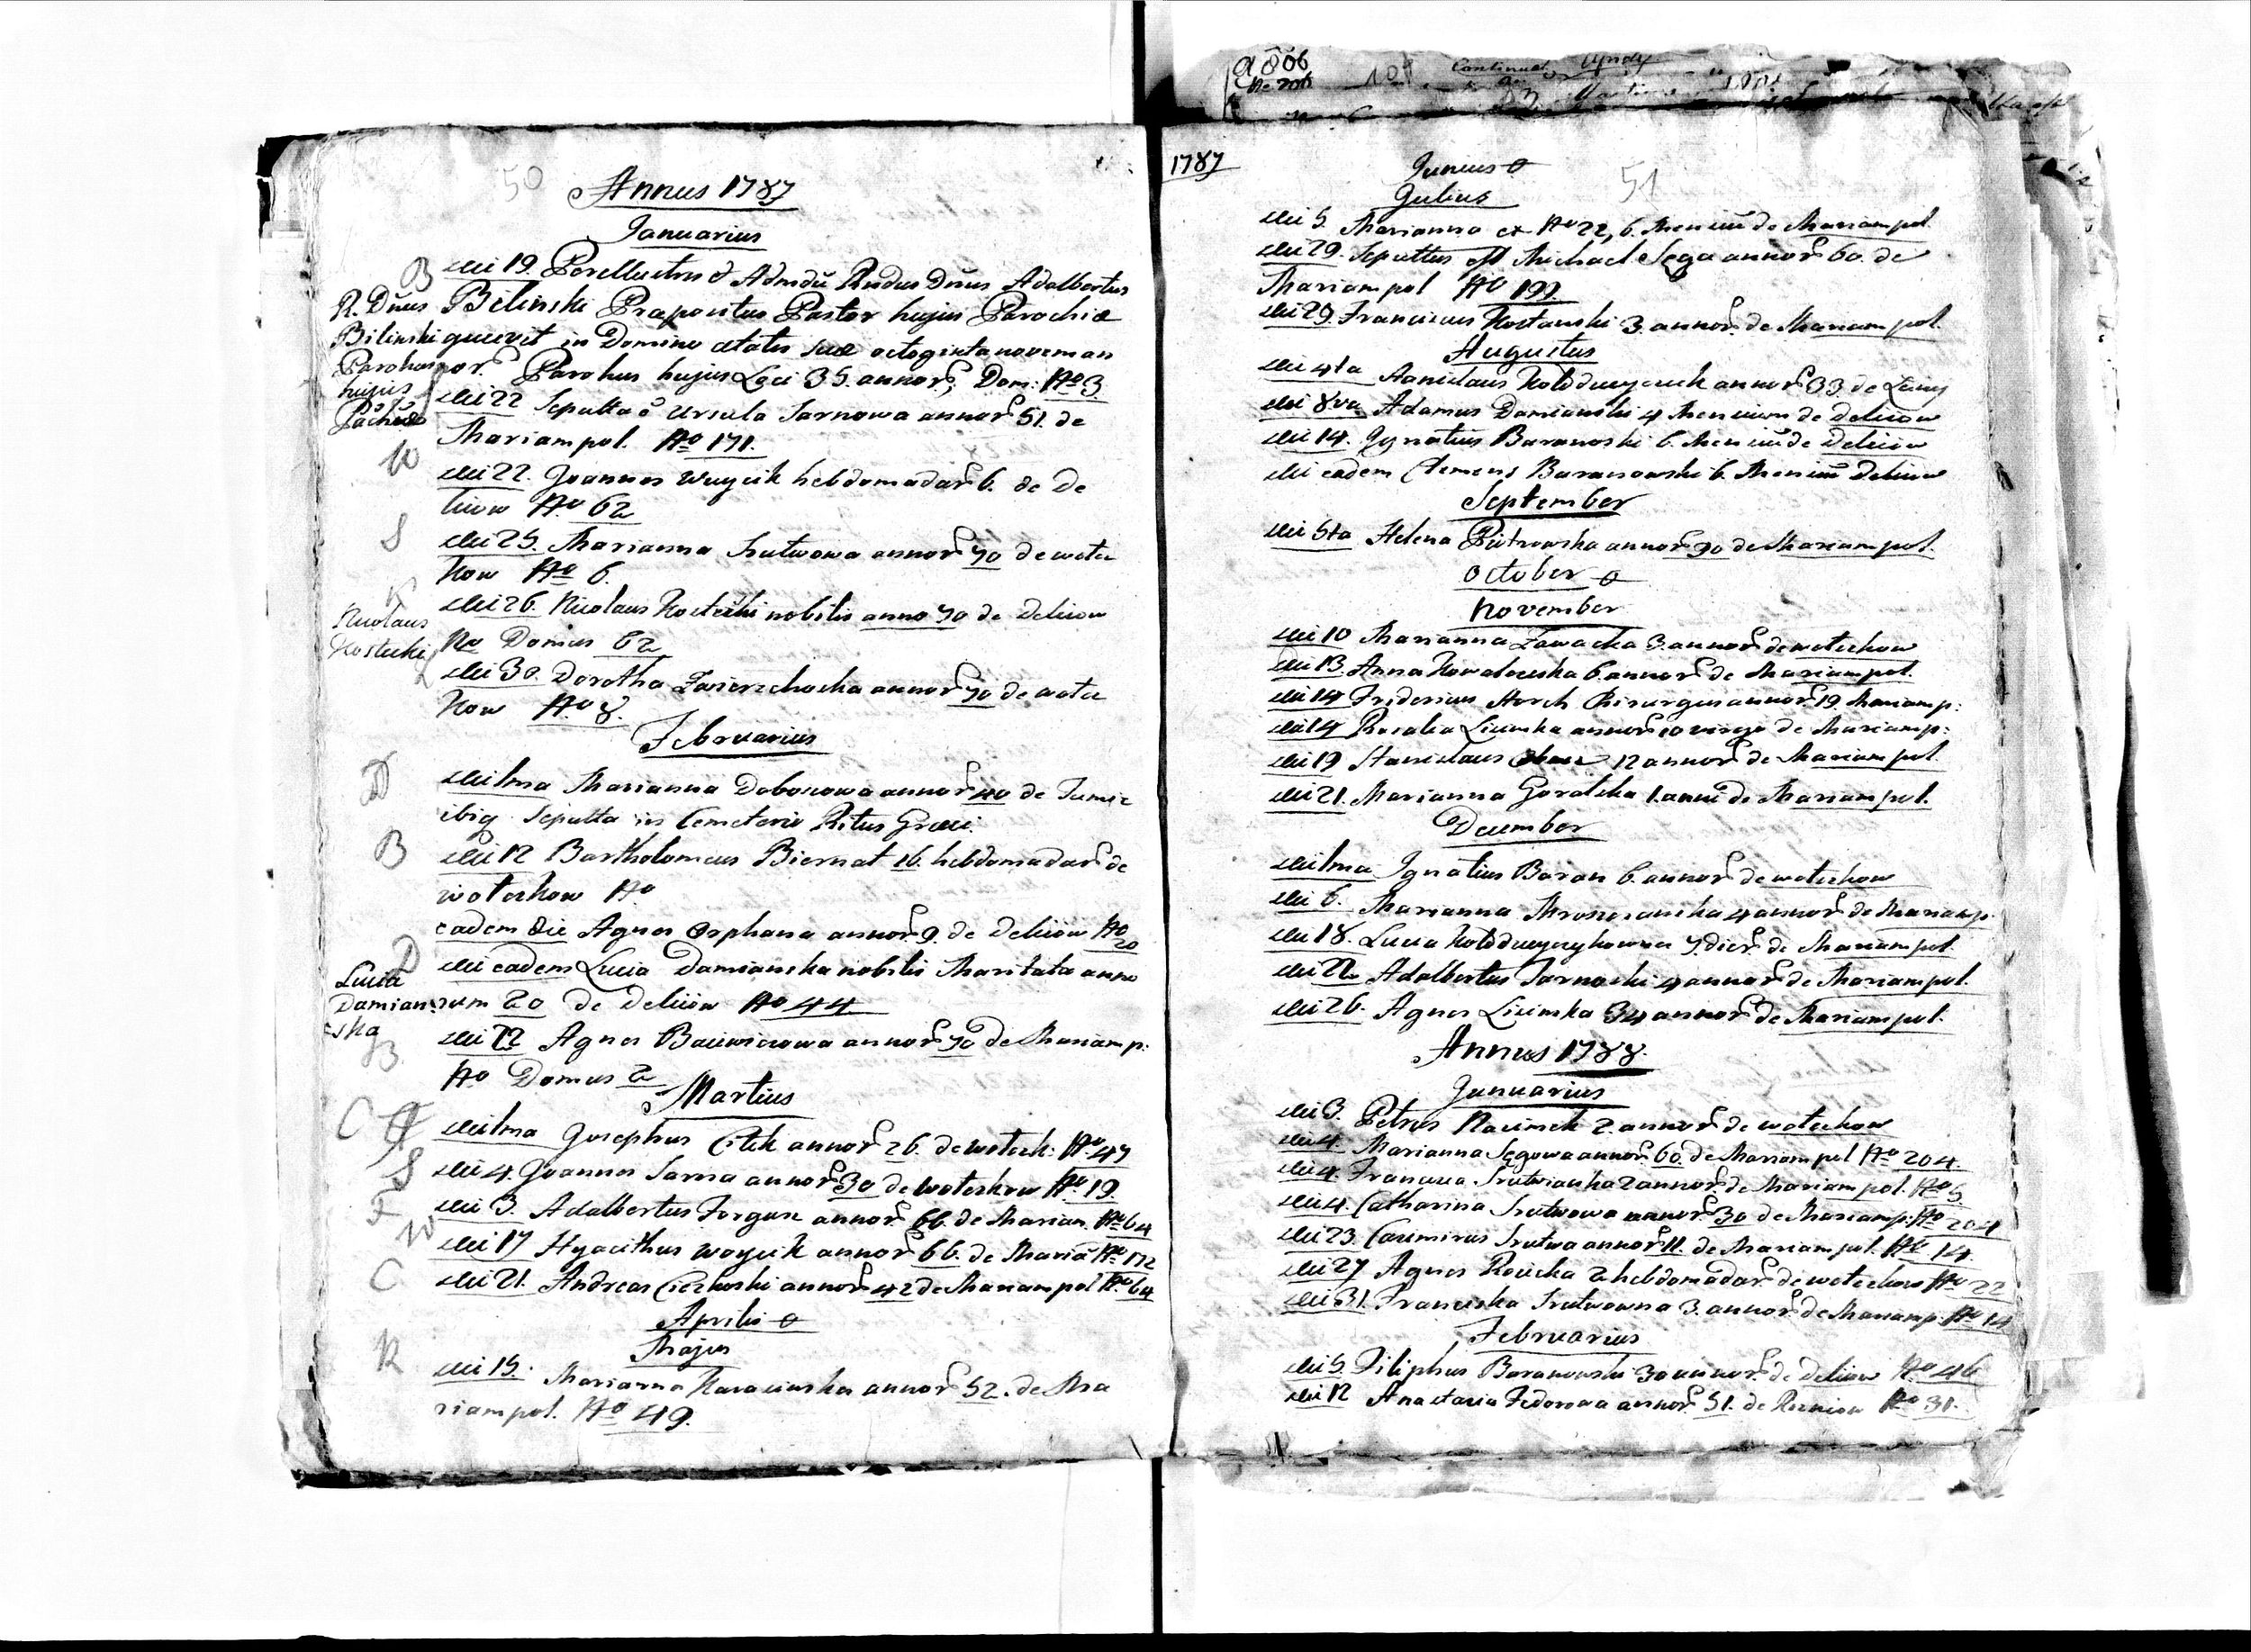 50
Annus 1787
Januarius
B
die 19. Perillustris & Admdũ Rndus Dñus Adalbertus
R. Dñus Bilinski Præpositus Pastor hujus Parochiæ
Bilinski quievit in Domino ætatis suæ octoginta novem an
Parohus nor. Parohus hujus Loci 35. annor, Dom: No 3.
hujus
Pachiæ
die 22 Sepulta e Ursula Sarnowa annor 51. de
Mariampol. No 171.
W
die 22. Joannes Wuycik hebdomadar 6. de De
liiow No 62
S
die 25. Marianna Srutwowa annor 70 de Wote
kow No 6.
K
Nicolaus
Kostecki
die 26. Nicolaus Kostecki nobilis anno 70 de Deliiow
No Domus 62
die 30. Dorotha Zwierzchocka annor 70 de Wote
kow No 8.
Februarius
D
die 1ma Marianna Doboszowa annor 40 de Tumir
ibig Sepulta in Cemeterio Ritus Græci.
B
die 12 Bartholomeus Biernat 16. hebdomadar de
Wotczkow No
eadem die Agnes Orphana annor 9. de Deliiow No
20
D
Lucia
Damian
ska
die eadem Lucia Damianska nobilis Maritata anno
rum 20 de Deliiow No 44
B
die 22 Agnes Baiewiczowa annor 70 de Mariamp:
No Domus 2
Martius
C
die 1ma Josephus Citek annor 26. de Wotczk: No 47
S
die 4. Joannes Sarna annor 30 de Wotczkow No 19.
F
die 3. Adalbertus Forgusz annor 66. de Marian. No 64
W
die 17 Hyacithus Woycik annor 66. de Maria No 172
C
die 21. Andreas Ciezkoski annor 42 de Mariampol No 64
Aprilis o
Majus
K
die 15. Marianna Karasinska annor 52. de Ma
riampol. No 49.
1787
51
Junius o
Julius
die 5. Marianna ex No 22, 6. Mensiũ de Mariampol
die 29. Sepultus est Michael Sęga annor 60. de
Mariampol No 199.
die 29. Franciscus Kostanski 3. annor. de Mariampol.
Augustus
die 4ta Stanislaus Kołodzieyczuk annor 33. de Łany
die 8va Adamus Damianski 4 Mensium de Deliiow
die 14. Ignatius Baranoski 6. Mensiũ de Deliiow
die eadem Clemens Baranowski 6. Mensiũ Deliiow
September
die 5ta Helena Piotrowska annor 90 de Mariampol.
October o
November
die 10 Marianna Zawacka 3. annor de Wotczkow
die 13. Anna Kowalowska 6. annor de Mariampol.
die 14 Fridericus Storch Chirurgus annor 19. Mariamp:
die 14 Rosalia Licinska annor 10 virgo de Mariamp:
die 19 Stanislaus 12 annor de Mariampol
die 21. Marianna Goralska 1. anni de Mariampol.
December
die 1ma Ignatius Baran 6. annor de Wotczkow
die 6. Marianna 4 annor de Mariamp.
die 18. Lucia 7. dier. de Mariampol.
die 22 Adalbertus Sarnocki 4 annor de Mariampol.
die 26. Agnes Licinska 34 annor de Mariampol.
Annus 1788.
Januarius
die 3. Petrus Racinek 2. annor de Wotczkow
die 4. Marianna Sęgowa annor 60. de Mariampol No 204.
die 4. Francisca Srutwianka 2 annor. de Mariampol. No 5
die 4. Catharina Srutwowa annor 30 de Mariamp: No 204
die 23. Casimirus Srutwa annor 11. de Mariampol. No 14.
die 27 Agnes Rocicka 2 hebdomadar. de Wotczkow No 22
die 31. Franciska Srutwowna 3. annor de Mariamp: No 14
Februarius
die 5. Filiphus Baranowski 30 annor. de Deliiow No 46
die 12 Anastasia Fedorowa annor. 51. de No 31.